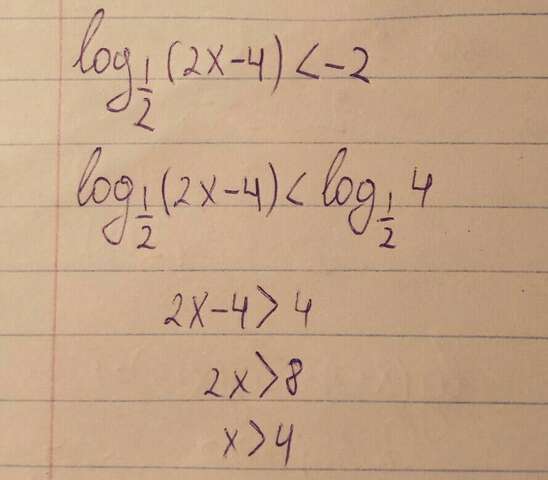 log_{1/2}(2x-4)<-2
log_{1/2}(2x-4)<log_{1/2}4
2x-4>4
2x>8
x>4